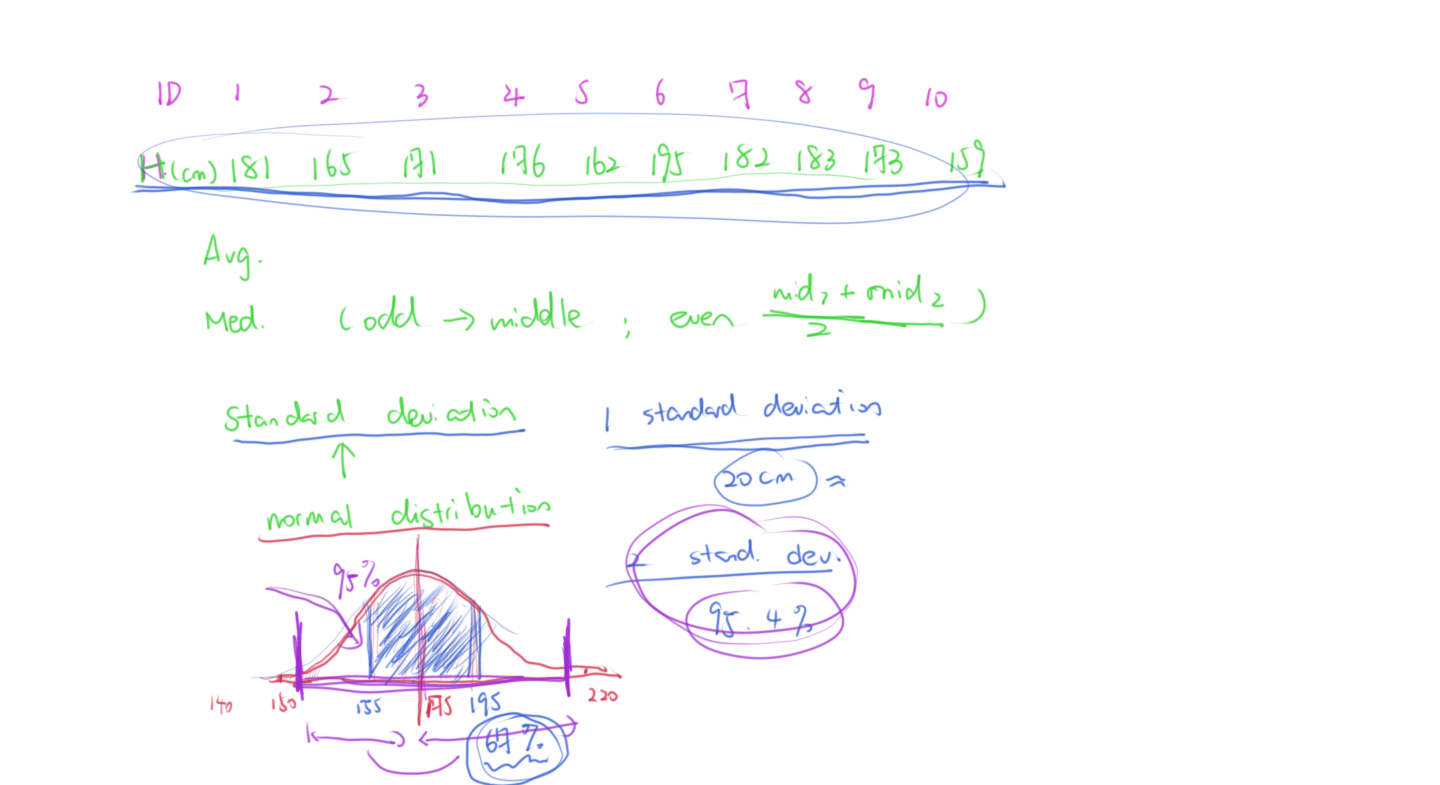 ID 1 2 3 4 5 6 7 8 9 10
H(cm) 181 165 171 176 162 195 182 183 173 159
Avg.
Med. (odd → middle ; even mid1 + mid2 / 2 )
Standard deviation
↑
normal distribution
95%
140 155 175 195 220
67%
1 standard deviation
20cm ≈
2 stand. dev.
95.4%